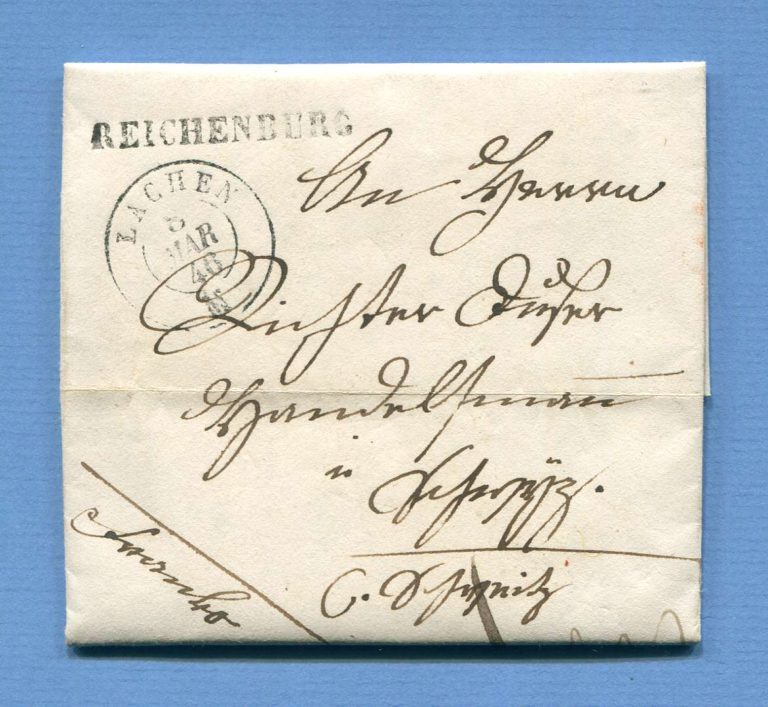 REICHENBURG
LACHEN
5
MAR
48
An Herrn
Richter
Handelsman̅
in
Schwÿz.
C. Schweitz
Franko